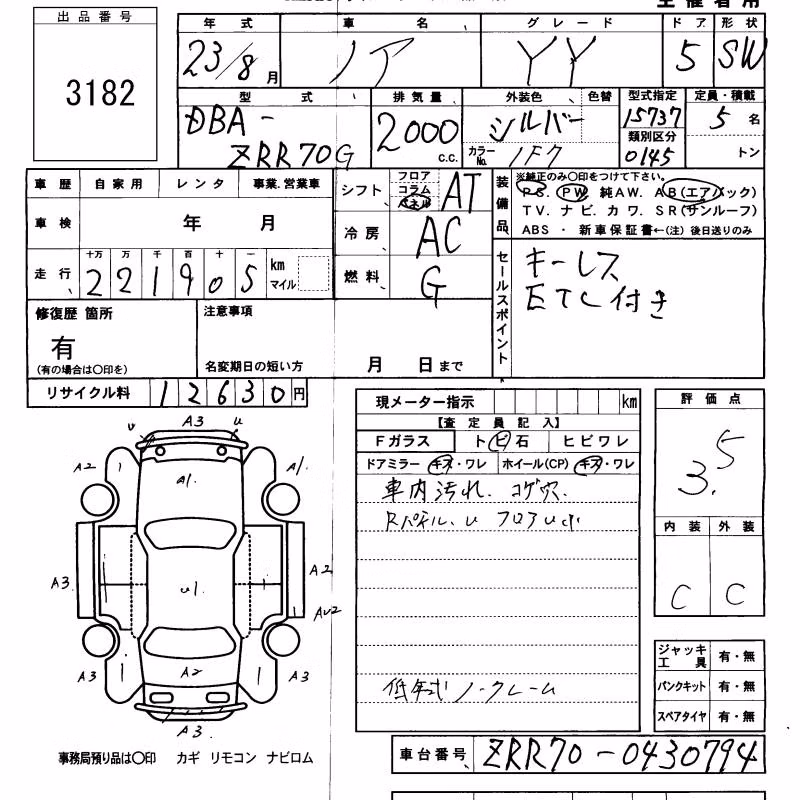 主催者用
出品番号
3182
年式 車名 グレード ドア 形状
23/8月 ノア YY 5 SW
型式 排気量 外装色 色替 型式指定 定員・積載
DBA-
ZRR70G
2000 c.c.
シルバー
カラーNo. 1F7
15737
類別区分
0145
5名
トン
車歴 自家用 レンタ 事業.営業車
車検 年 月
走行 十万 万 千 百 十 一
221905 km マイル
シフト フロア コラム パネル AT
冷房 AC
燃料 G
装備品
※純正のみ〇印をつけて下さい。
PS. PW. 純AW. AB(エアバック)
TV. ナビ. カワ. SR(サンルーフ)
ABS ・ 新車保証書←(注) 後日送りのみ
セールスポイント
キーレス
ETC付き
修復歴 箇所
有
(有の場合は〇印を)
注意事項
名変期日の短い方 月 日まで
リサイクル料 12630円
現メーター指示 km
【査定員記入】
Fガラス トビ石 ヒビワレ
ドアミラー キズ・ワレ ホイール(CP) キズ・ワレ
車内汚れ. コゲ穴.
Rパネル. U フロアU
低年式ノークレーム
評価点
3.5
内装 外装
C C
ジャッキ工具 有・無
パンクキット 有・無
スペアタイヤ 有・無
A3
U U
A2 A1
A1.
A3 U1. A2
AU2
A3 A2 A3
A3
事務局預り品は〇印 カギ リモコン ナビロム
車台番号 ZRR70-0430794